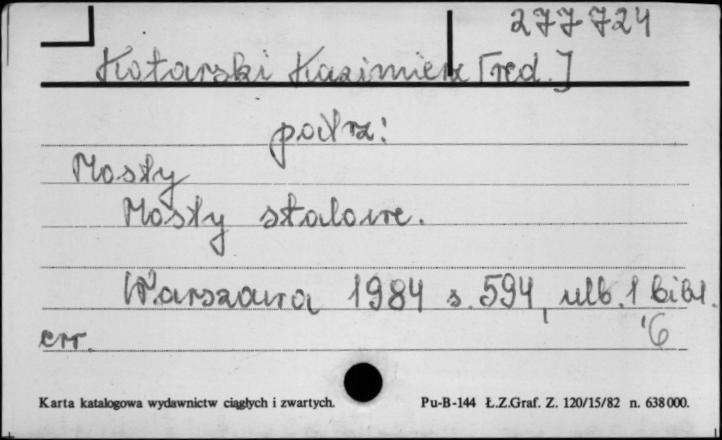 277724
Kotarski Kazimierz [red.]
patrz:
Mosty
Mosty stalowe.
Warszawa 1984 s. 594, ulb. 1 bibl.
err. '6
Karta katalogowa wydawnictw ciągłych i zwartych. Pu-B-144 Ł.Z.Graf. Z. 120/15/82 n. 638 000.